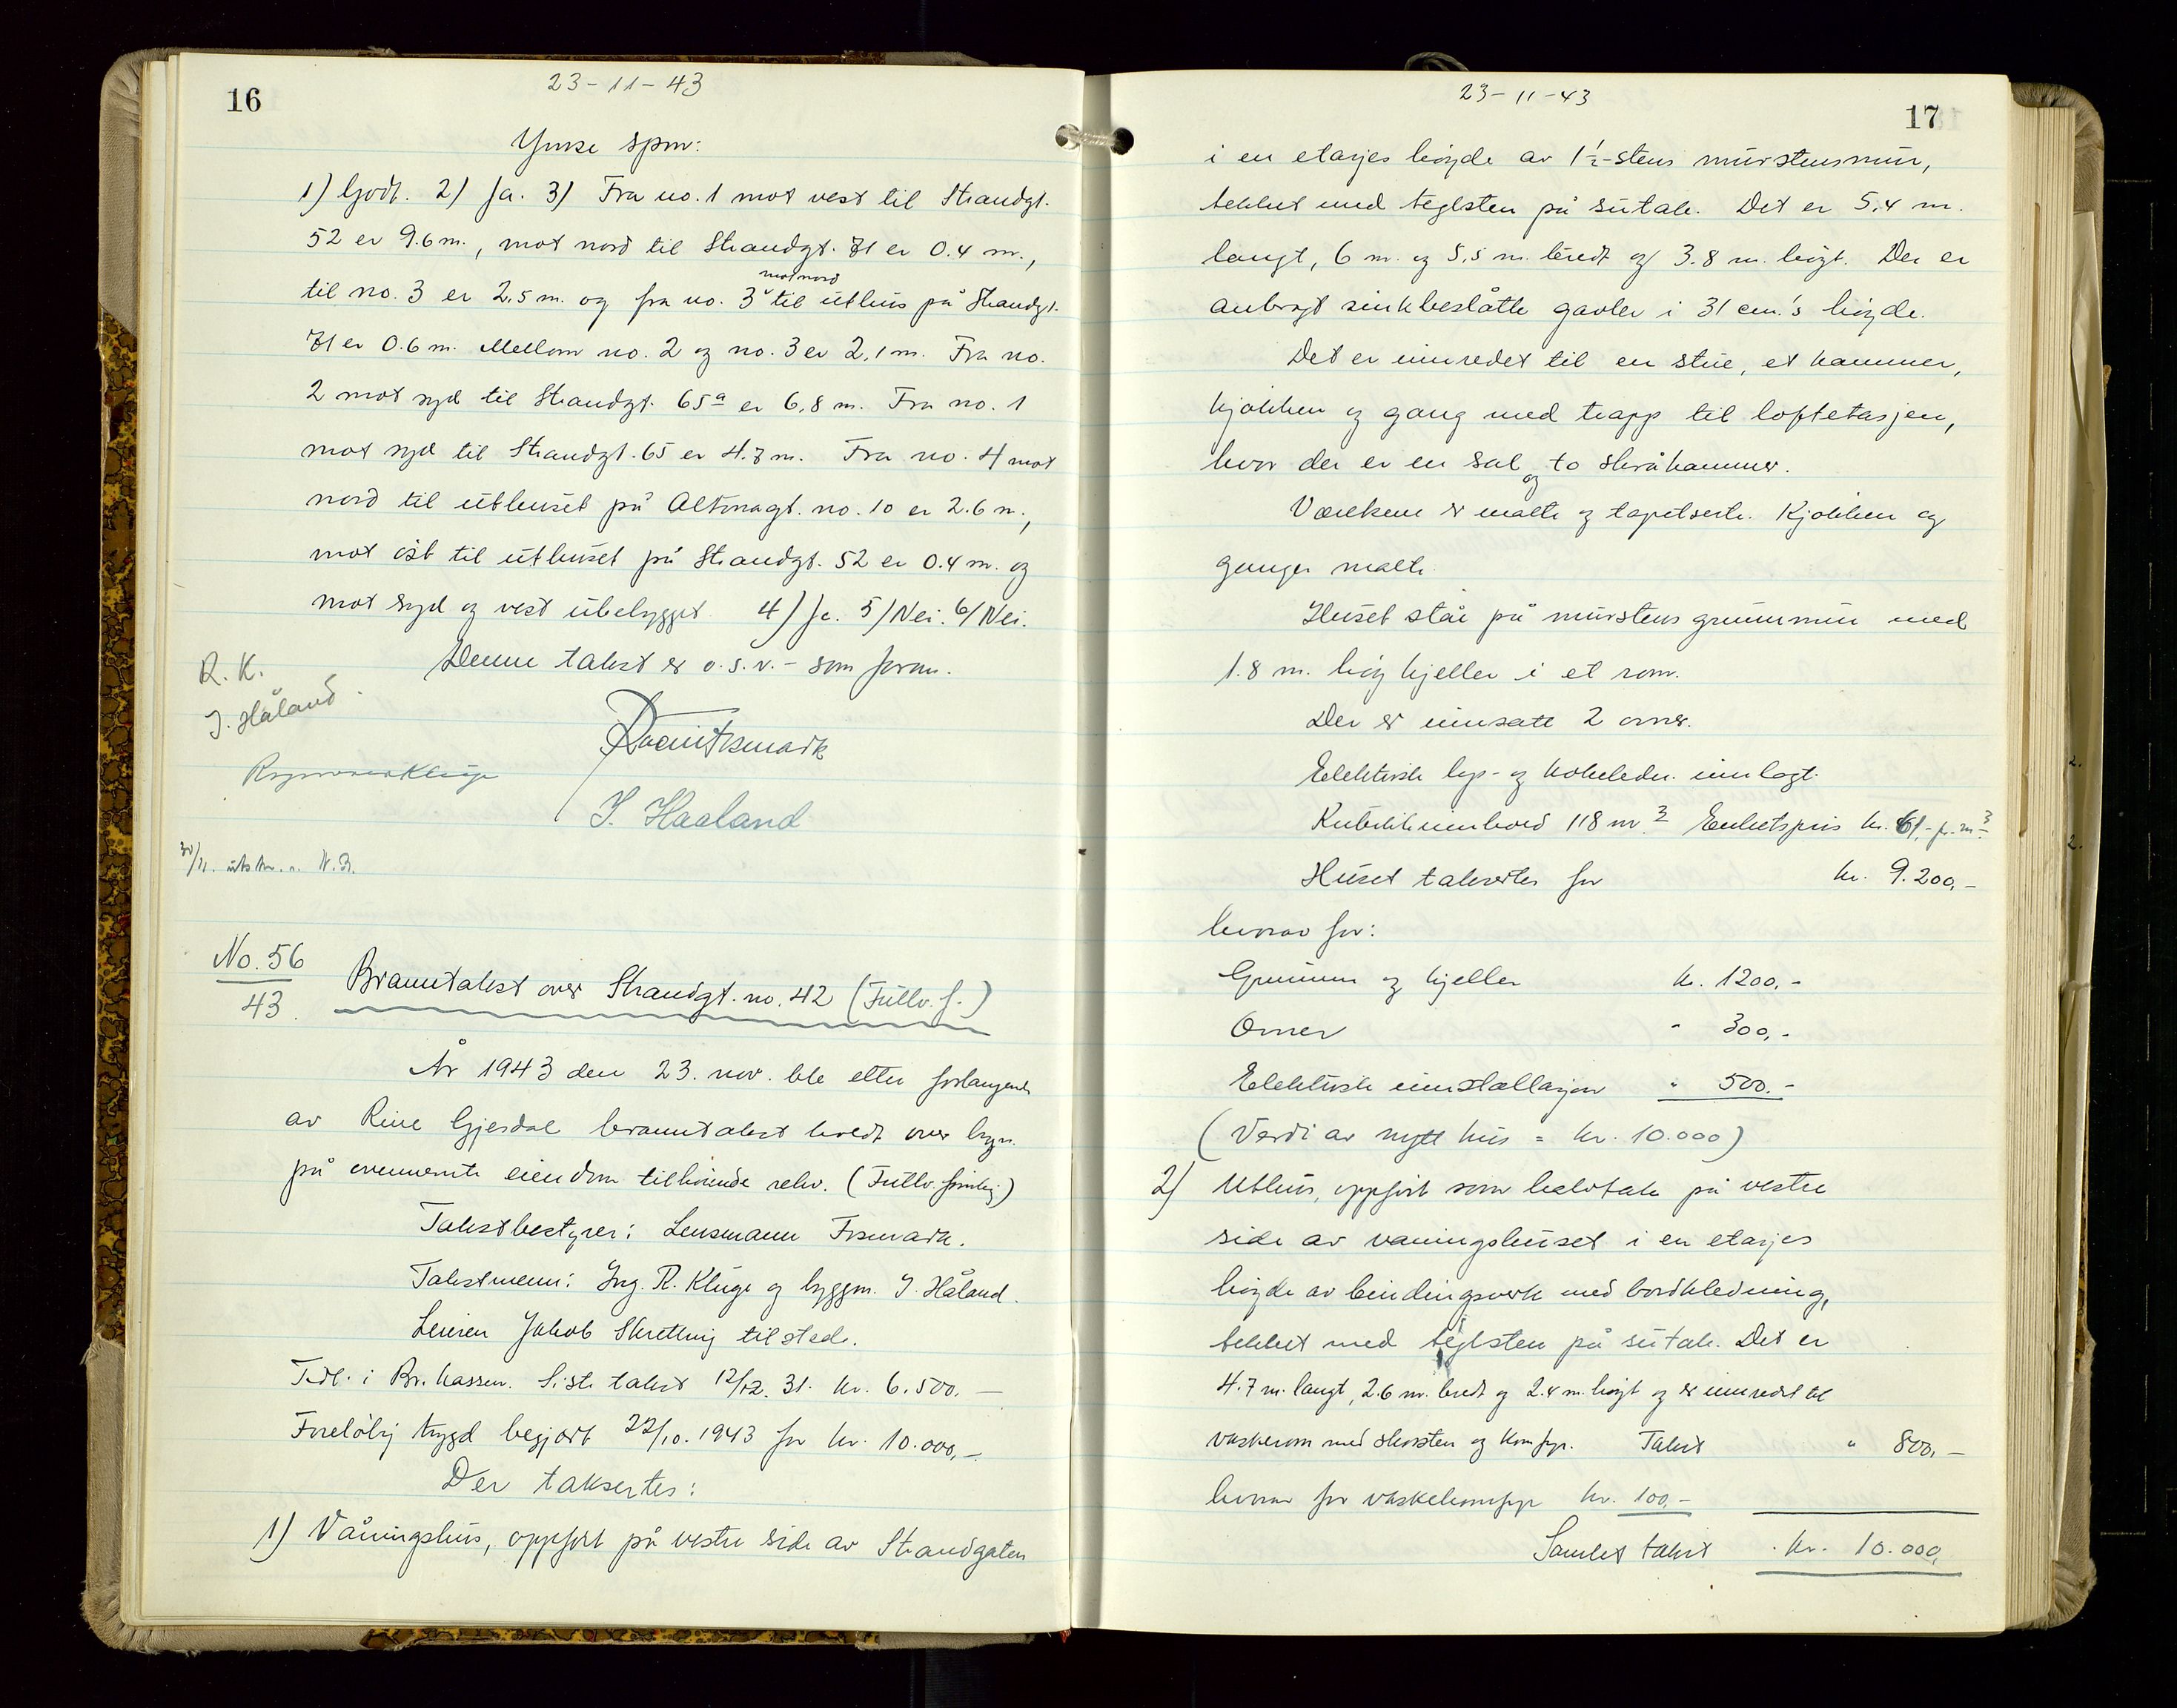 16
23-11-43
Ymse spm:
1) Godt. 2) Ja. 3) Fra no. 1 mot vest til Strandgt.
52 er 9.6 m., mot nord til Strandgt. 71 er 0.4 m.,
mot nord
til no. 3 er 2,5 m. og fra no. 3 til uthus på Strandgt.
71 er 0.6 m. Mellom no. 2 og no. 3 er 2,1 m. Fra no.
2 mot syd til Strandgt. 65a er 6,8 m. Fra no. 1
mot syd til Strandgt. 65 er 4.7 m. Fra no. 4 mot
nord til uthuset på Altonagt. no. 10 er 2.6 m.,
mot öst til uthuset på Strandgt. 52 er 0.4 m. og
mot syd og vest ubebygget. 4) Ja. 5) Nei. 6) Nei.
Denne takst er o.s.v. - som foran.
R. K.
J. Håland.
J. Haaland
30/11. utskr. N.B.
No. 56
43.
Branntakst over Strandgt. no. 42 (Fullv. f.)
År 1943 den 23. nov. ble etter forlangende
av Rine Gjesdal branntakst holdt over bygn.
på ovennevnte eiendom tilhörende rekv. (Fullv. forsikr.)
Takstbestyrer: Lensmann Fosmark.
Takstmenn: Ing. R. Kluge og byggm. J. Håland.
Leieren Jakob Skretting tilstede.
Tidl. i Br. kassen. Siste takst 12/12. 31. kr. 6.500.-
Forelöbig trygd begjært 22/10. 1943 for kr. 10.000,-.
Der taksertes:
1) Våningshus, oppfört på vestre side av Strandgaten
23-11-43
17
i en etasjes höyde av 1½-stens murstensmur,
tekket med teglsten på sutak. Det er 5,4 m.
langt, 6 m. og 5,5 m. bredt og 3.8 m. höyt. Der er
anbragt sinkbeslåtte gavler i 31 cm.'s höyde.
Det er innredet til en stue, et kammer,
kjökken og gang med trapp til loftetasjen,
hvor der er en sal og to skråkammer.
Værelsene er malte og tapetserte. Kjökken og
ganger malte.
Huset står på murstens grunnmur med
1.8 m. höy kjeller i et rom.
Der er innsatt 2 ovner.
Elektrisk lys- og kokeledn. innlagt.
Kubikkinnhold 118 m³. Enhetspris kr. 61,- p. m³.
Huset takseres for kr. 9.200,-
hvorav for:
Grunnm og kjeller kr. 1200,-
Ovner " 300,-
Elektrisk innstallasjon " 500.-
(Verdi av nytt hus = kr. 10.000)
2) Uthus, oppfört som halvtak på vestre
side av vaningshuset i en etasjes
höyde av bindingsverk med bordkledning,
tekket med teglsten på sutak. Det er
4.7 m. langt, 2.6 m. bredt og 2.4 m. höyt og er innredet til
vaskerom med skorsten og komfyr. Takst " 800,-
hvorav for vaskekomfyr kr. 100,-
Samlet takst kr. 10.000,